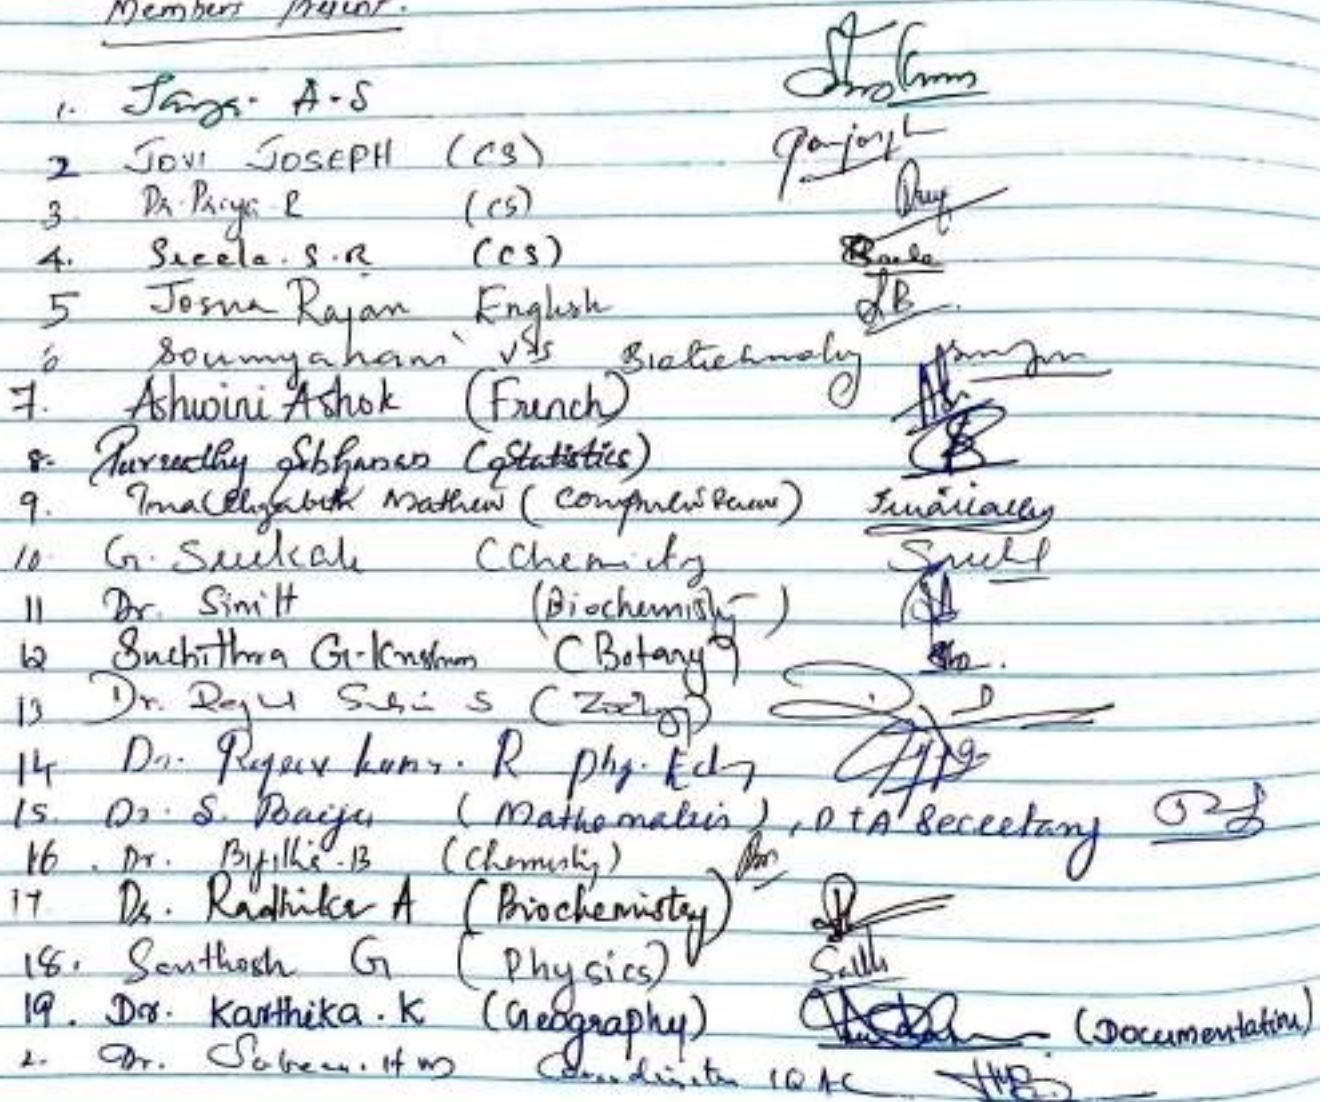 Members Present.
1. A.S
2 JOVI JOSEPH (CS)
3. Dr. Priya. R (CS)
4. Sreela. S. R (CS)
5 Josna Rajan English
6 Soumyahani VS Biotechnology
7. Ashwini Ashok (French)
8. (Statistics)
9. Elizabeth Mathew (Computer Science)
10. G. (Chemistry
11 Dr. Simi H (Biochemistry)
12 Suchithra G. Krishnan (Botany)
13 Dr. S (Zoology)
14 Dr. Rajeev kumar. R phy. Edn
15. Dr. S. Baiju (Mathematics), PTA Secretary
16. Dr. B (Chemistry)
17 Dr. Radhika A (Biochemistry)
18. Santhosh G (Physics)
19. Dr. Karthika. K (Geography) (Documentation)
2. Dr. Coordinator IQAC